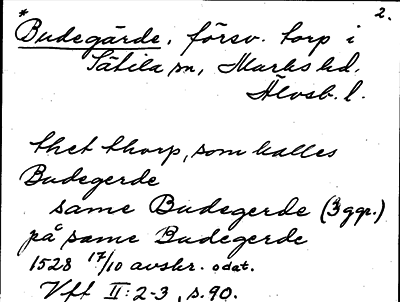 2.
*Budegärde, försv. torp i
Sätila sn, Marks hd.
Älvsb. l.
thet thorp, som kalles
Budegerde
same Budegerde (3 ggr.)
på same Budegerde
1528 17/10 avskr. odat.
Vft II: 2-3, s. 90.